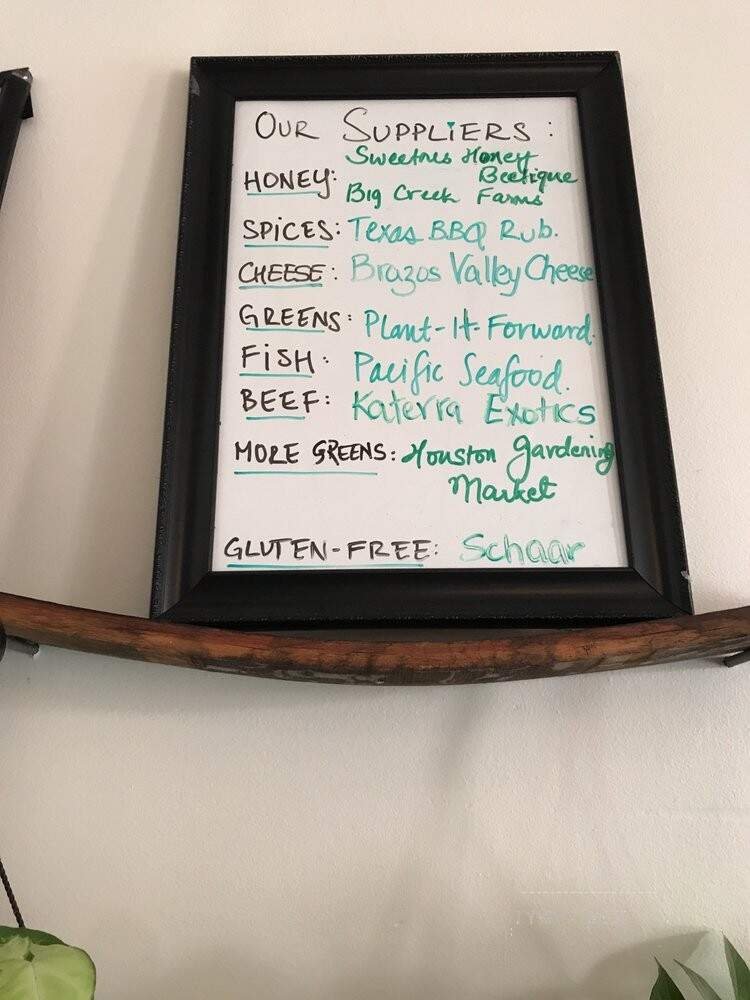 OUR SUPPLIERS:
Sweetnes Honey
HONEY: Beetique
Big Creek Farms
SPICES: Texas BBQ Rub.
CHEESE: Brazos Valley Cheese
GREENS: Plant-It-Forward.
FISH: Pacific Seafood.
BEEF: Katerra Exotics
MORE GREENS: Houston Gardening
Market
GLUTEN-FREE: Schaar